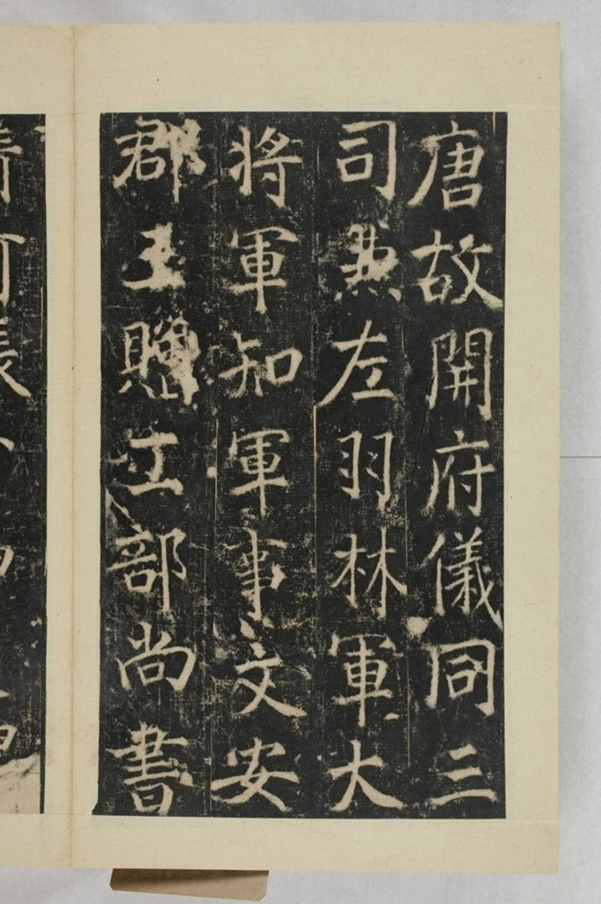 唐故開府儀同三
司兼左羽林軍大
將軍知軍事文安
郡王贈工部尚書